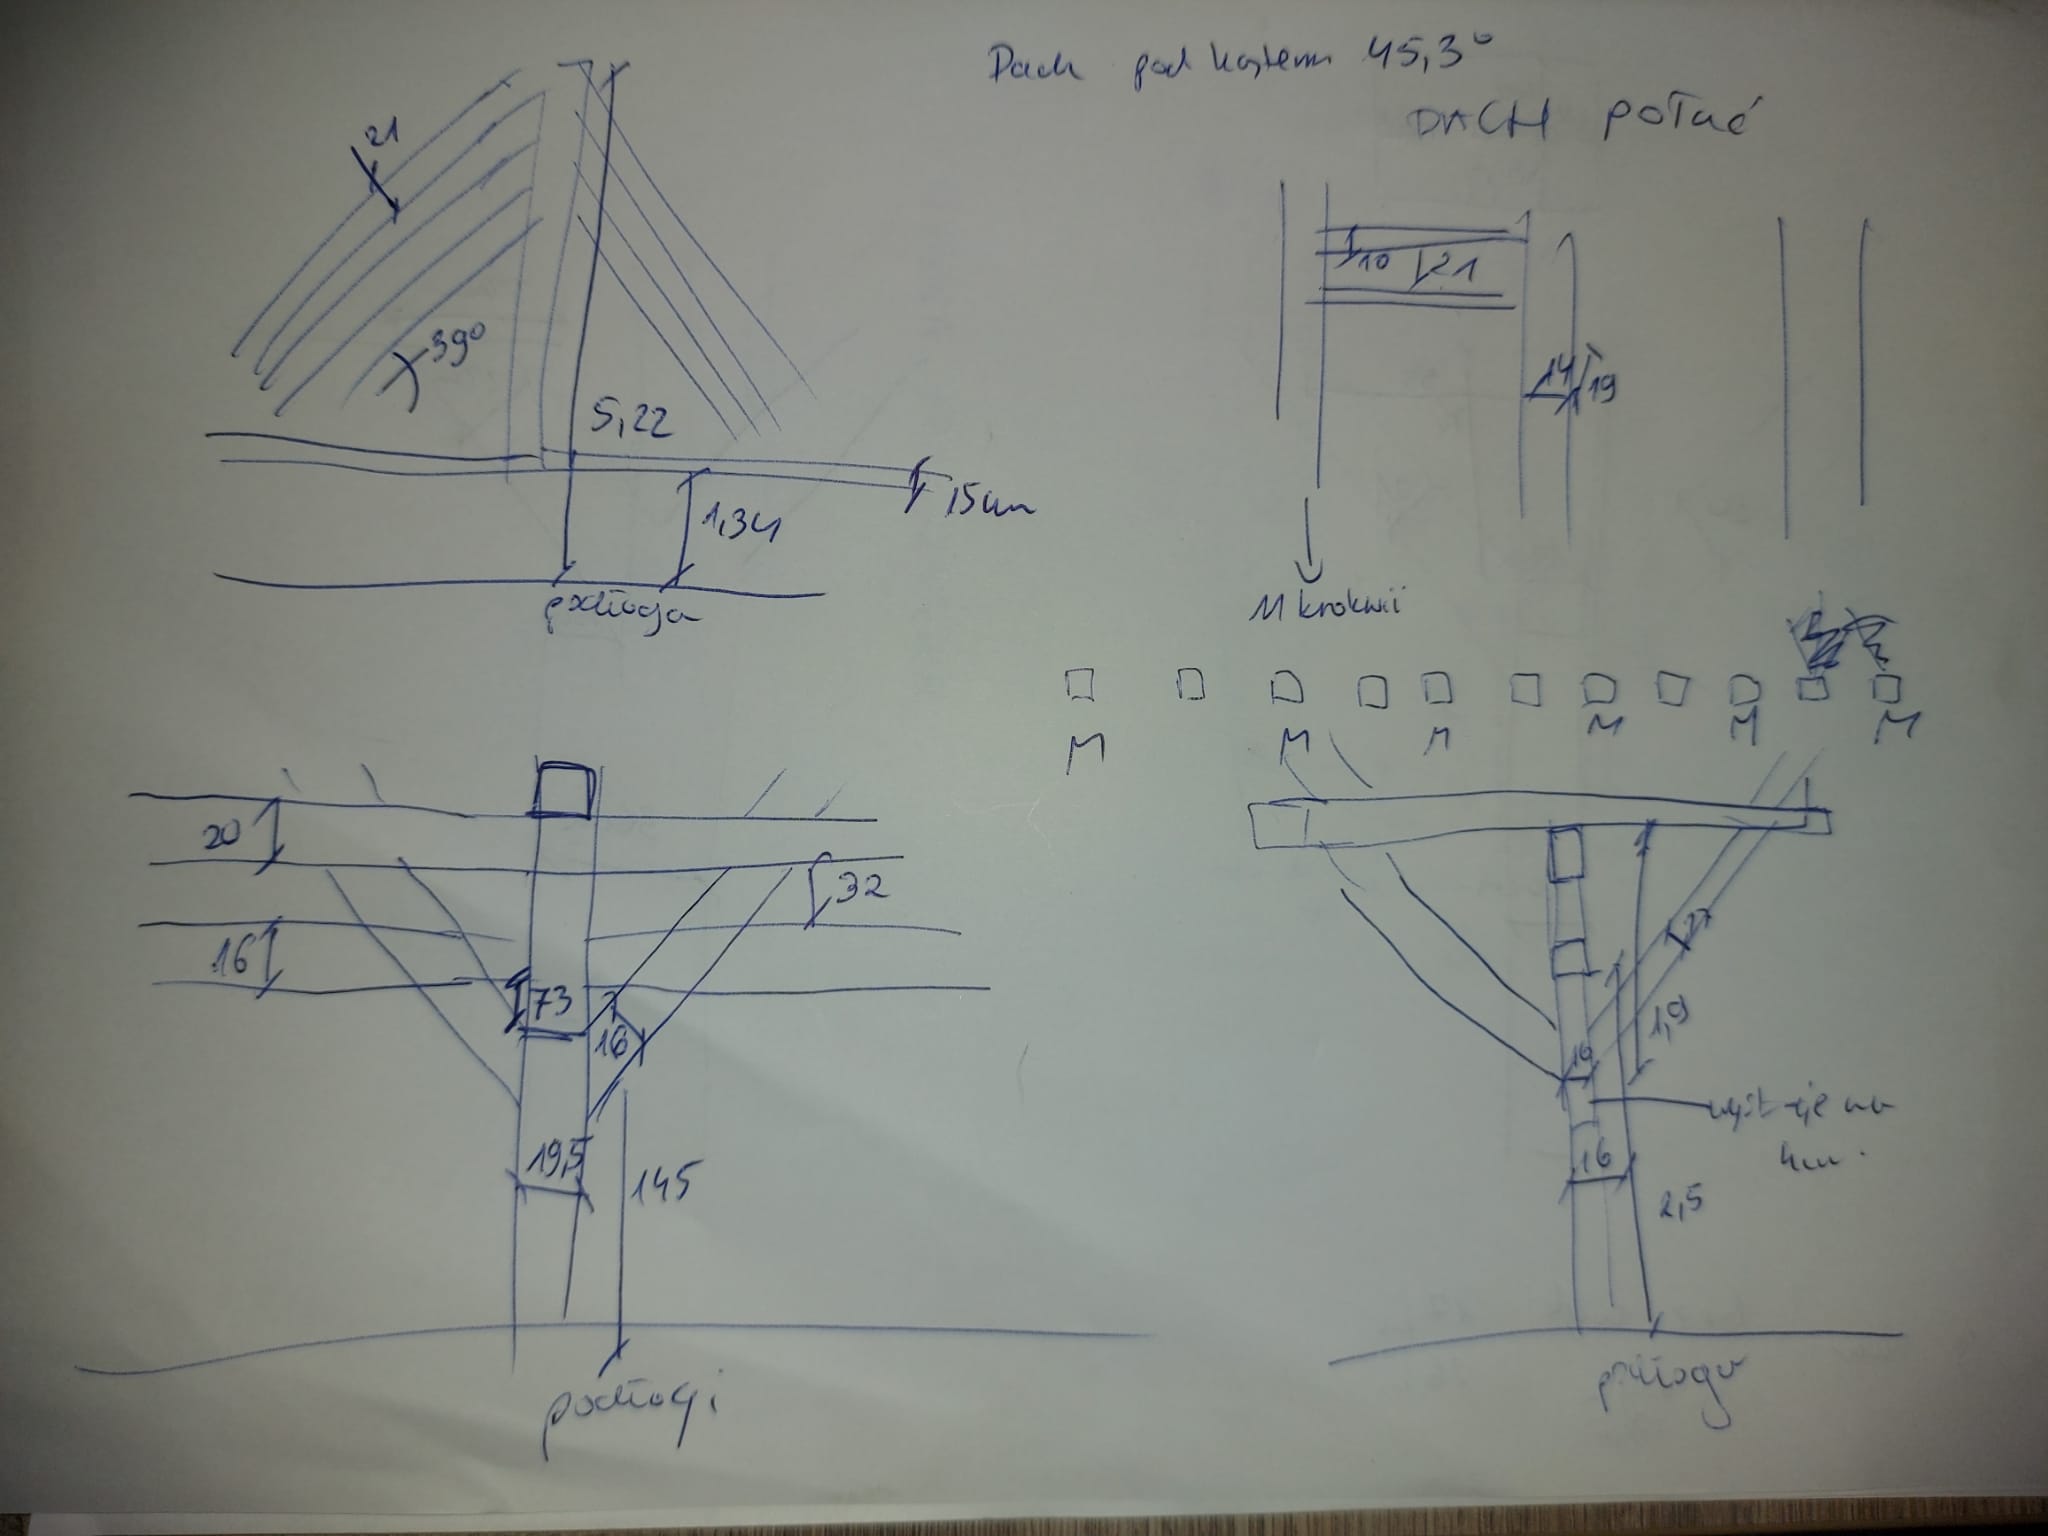 Dach pod kątem 45,3°
DACH połać
21
39°
5,22
15cm
1,34
podłoga
10
21
14
19
11 krokwii
M M M M M M
20
32
16
73
16
19,5
145
podłogi
27
1,9
10
16
2,5
podłoga